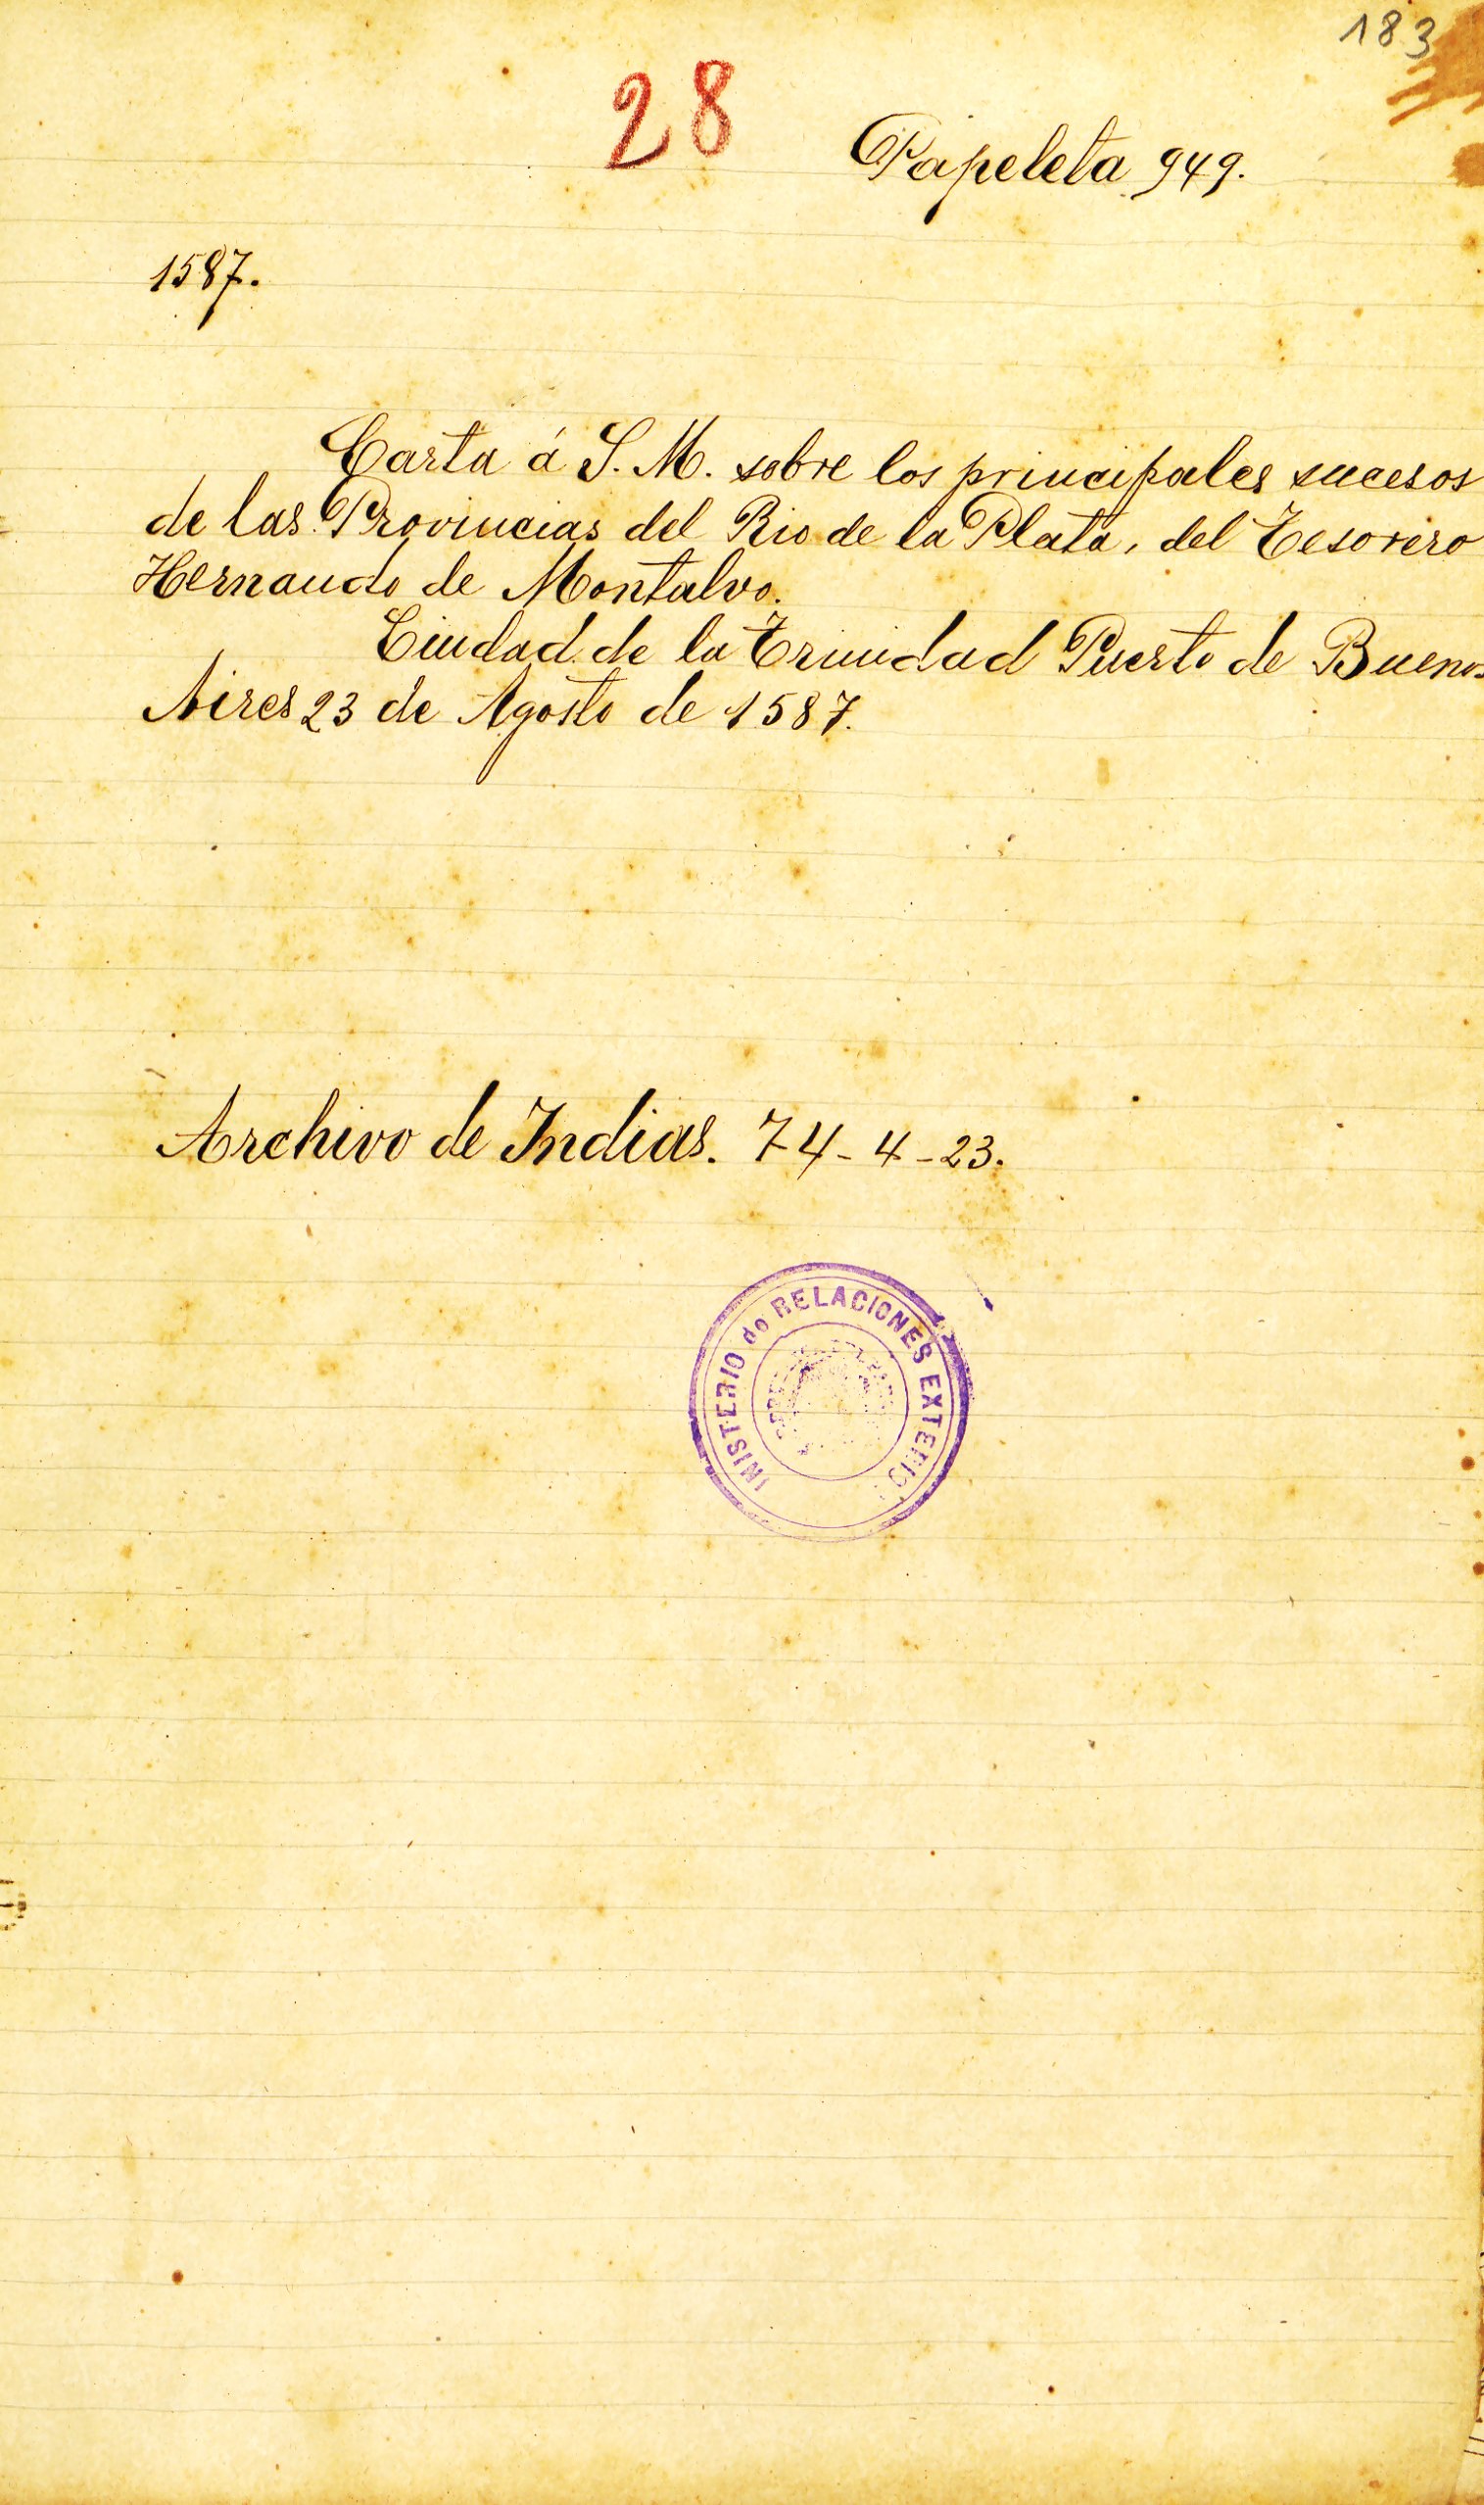 183
28
Papeleta 949.
1587.
Carta á S. M. sobre los principales sucesos
de las Provincias del Rio de la Plata, del Tesorero
Hernando de Montalvo.
Ciudad de la Trinidad Puerto de Buenos
Aires 23 de Agosto de 1587.
Archivo de Indias. 74-4-23.
INISTERIO de RELACIONES EXTERIO